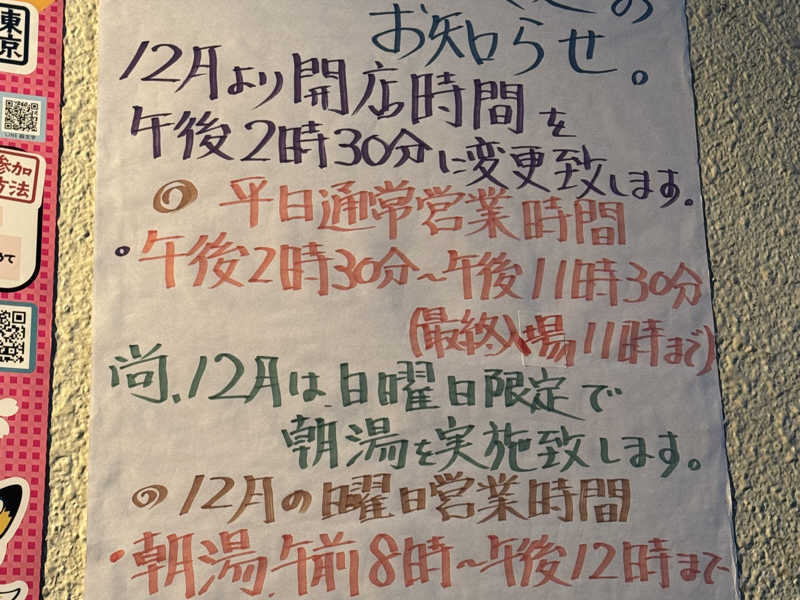 お知らせ。
12月より開店時間を
午後2時30分に変更致します。
平日通常営業時間
・午後2時30分~午後11時30分
(最終入場11時まで)
尚、12月は、日曜日限定で
朝湯を実施致します。
12月の日曜日営業時間
・朝湯、午前8時~午後12時まで
東京
参加
方法